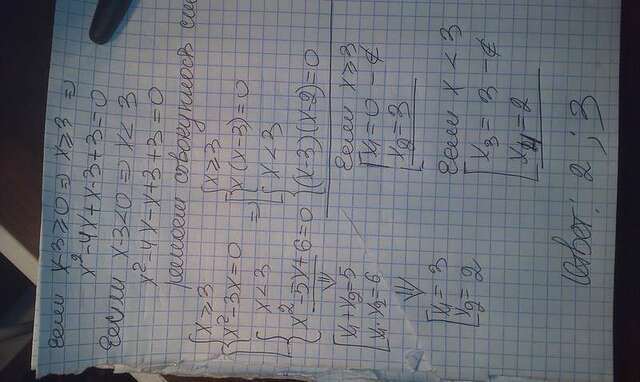 если x-3≥0 ⇒ x≥3 ⇒
x²-4x+x-3+3=0
если x-3<0 ⇒ x<3
x²-4x-x+3+3=0
решаем совокупность сис
{x≥3
x²-3x=0
{x<3
x²-5x+6=0
⇒
[{x≥3
x(x-3)=0
{x<3
(x-3)(x-2)=0
⇓
[x₁+x₂=5
x₁·x₂=6
⇓
[x₁=3
x₂=2
если x≥3
[x₁=0 -¢
x₂=3
если x<3
[x₃=3 -¢
x₄=2
Ответ: 2; 3